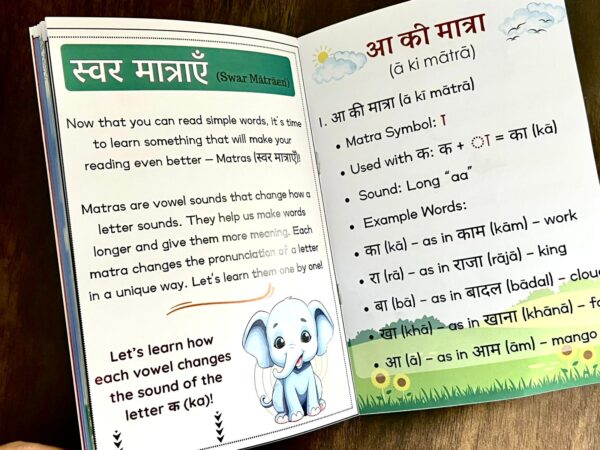 स्वर मात्राएँ (Swar Mātrāen)
Now that you can read simple words, it's time
to learn something that will make your
reading even better – Matras (स्वर मात्राएँ)!
Matras are vowel sounds that change how a
letter sounds. They help us make words
longer and give them more meaning. Each
matra changes the pronunciation of a letter
in a unique way. Let's learn them one by one!
Let's learn how
each vowel changes
the sound of the
letter क (ka)!
आ की मात्रा
(ā ki mātrā)
1. आ की मात्रा (ā kī mātrā)
• Matra Symbol: ा
• Used with क: क + ा = का (kā)
• Sound: Long "aa"
• Example Words:
• का (kā) – as in काम (kām) – work
• रा (rā) – as in राजा (rājā) – king
• बा (bā) – as in बादल (bādal) – cloud
• खा (khā) – as in खाना (khānā) –
• आ (ā) – as in आम (ām) – mango